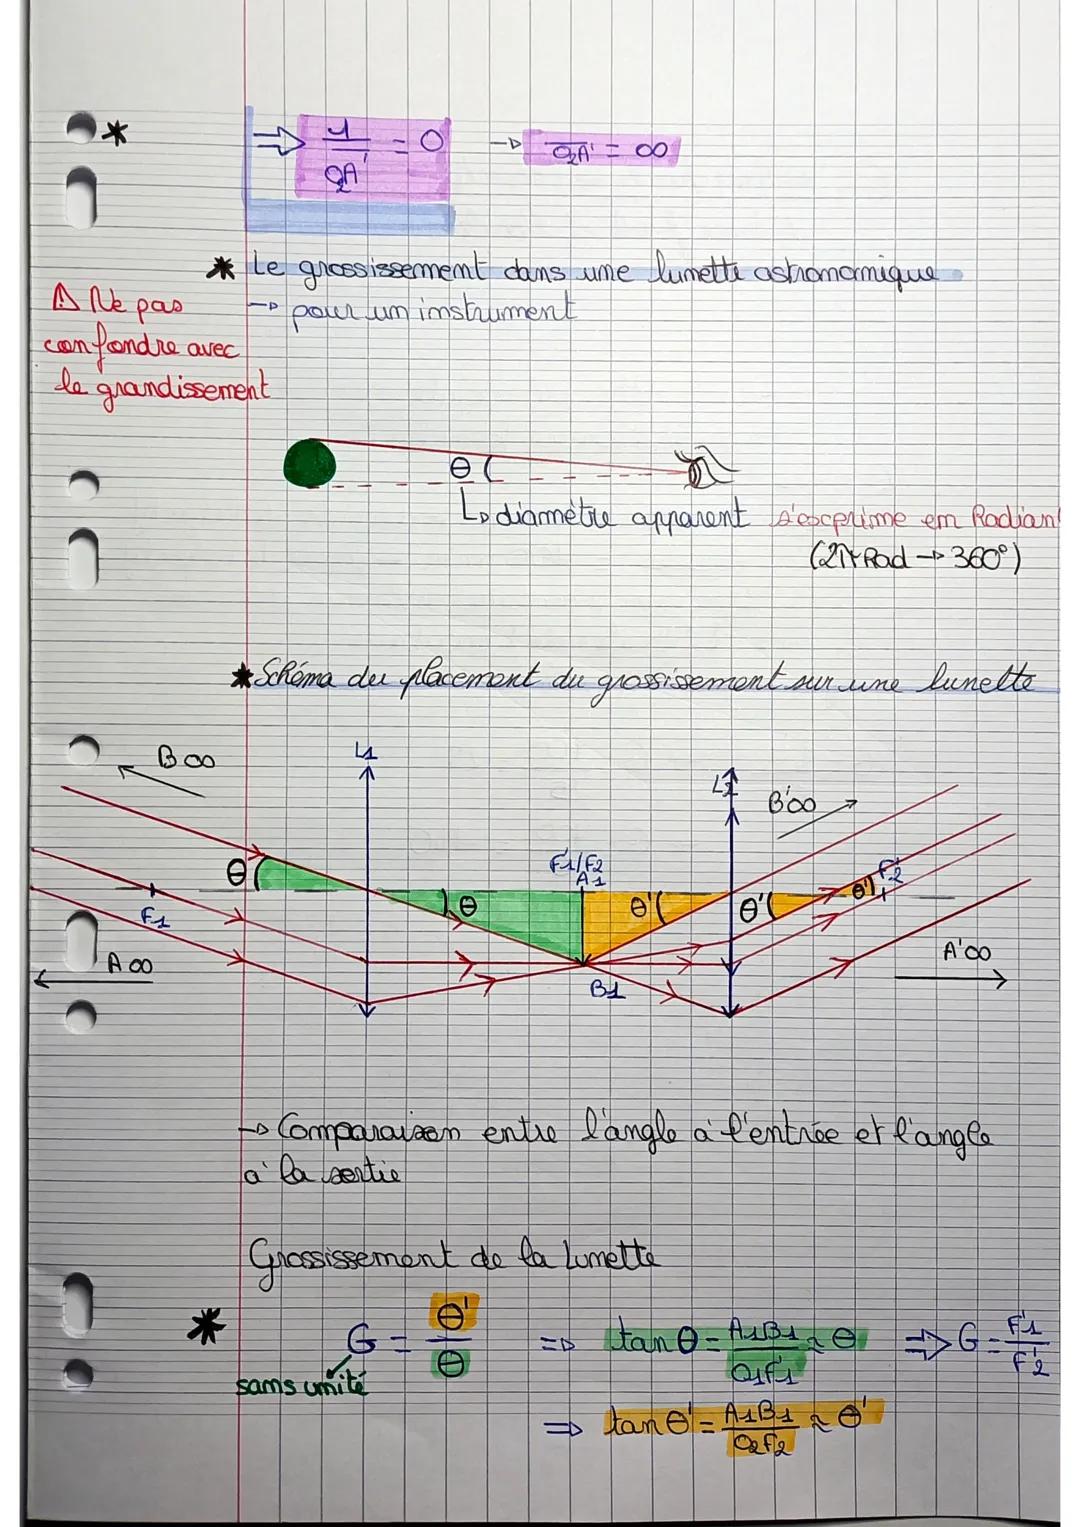 * ⇒ 1/O₂A' = 0 → O₂A' = ∞
* Le grossissement dans une lunette astronomique
⚠ Ne pas confondre avec le grandissement
→ pour un instrument
θ (
↳ diamètre apparent s'exprime em Radian
(2π Rad → 360°)
* Schéma du placement du grossissement sur une lunette
B∞
L1
L2
B'∞
F'1/F2
A1
θ (
) θ
θ' (
θ' (
θ' )
F'2
F1
A∞
B1
A'∞
→ Comparaison entre l'angle à l'entrée et l'angle
à la sortie
Grossissement de la lunette
* G = θ'/θ ⇒ tan θ = A1B1/O1F'1 ≈ θ ⇒ G = F'1/F'2
sans unité
⇒ tan θ' = A1B1/O2F2 ≈ θ'